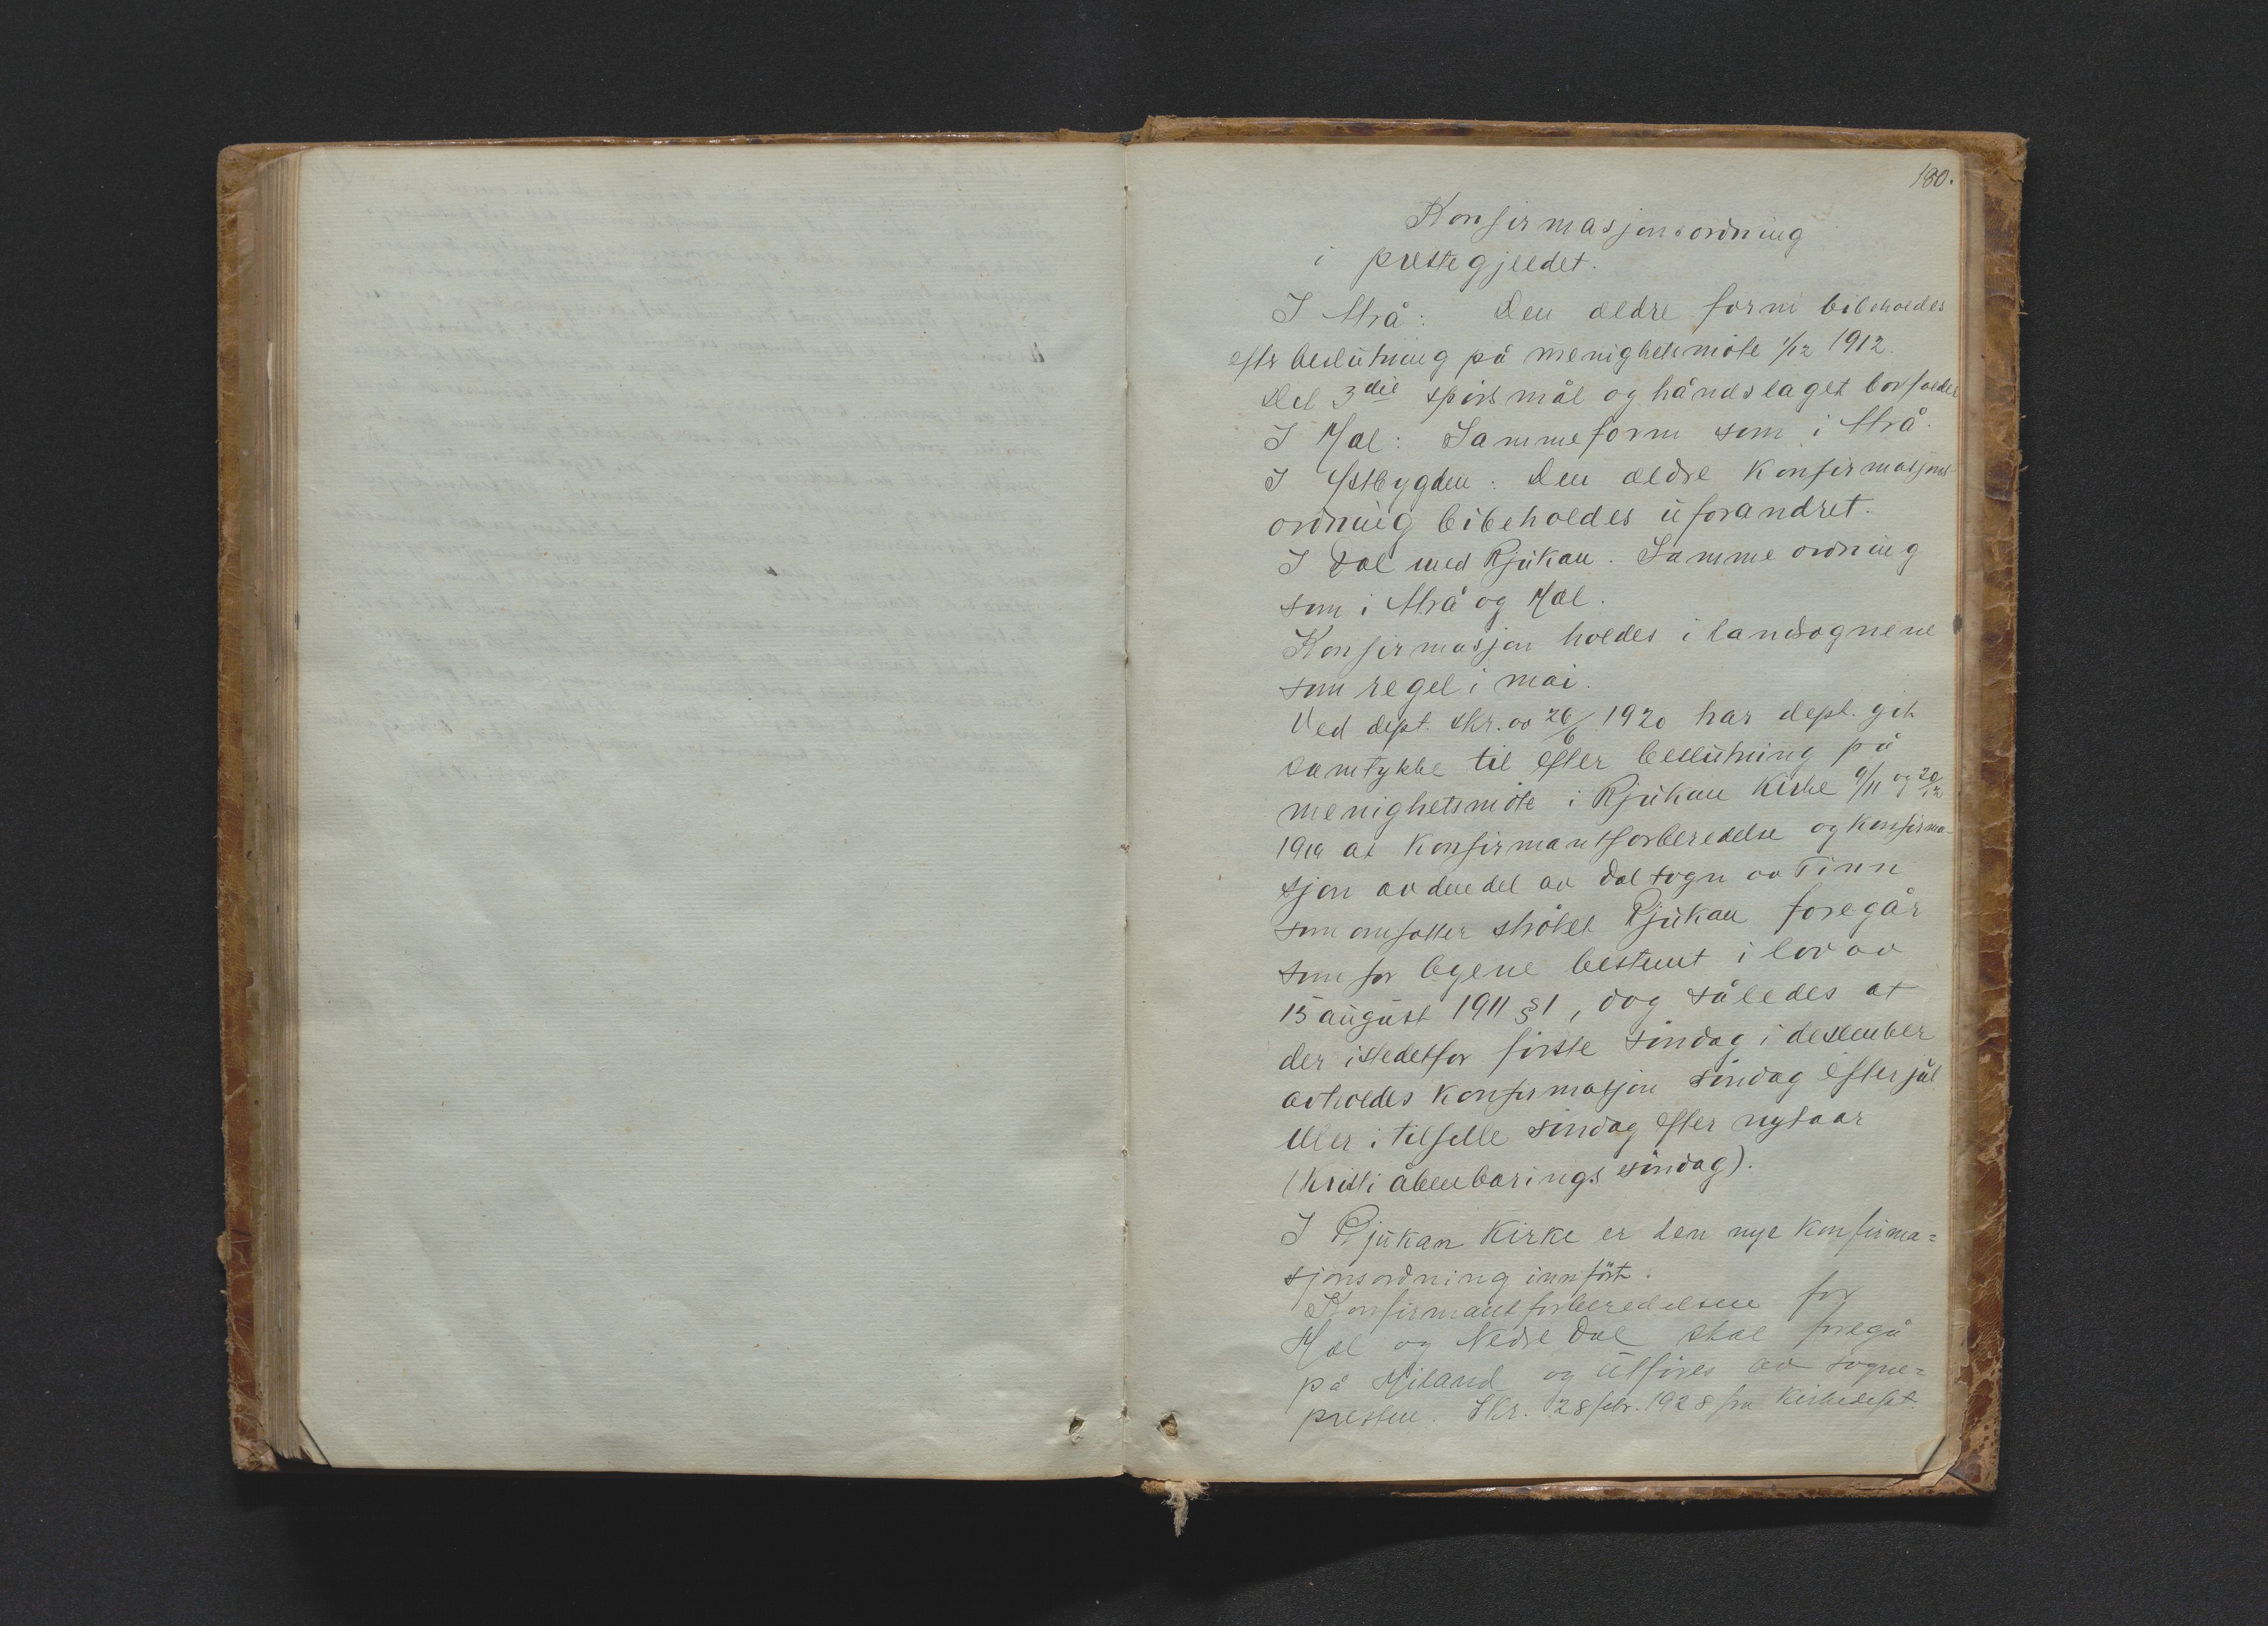 180.
Konfirmasjonsordning
i prestegjeldet.
I Atrå: Den ældre form bibeholdes
efter beslutning på menighetsmöte 1/12 1912.
Det 3die spörsmål og håndslaget bortfalder
I Hæl: Samme form som i Atrå.
I Östbygden: Den ældre konfirmasjons
ordning bibeholdes uforandret.
I Dal med Rjukan. Samme ordning
som i Atrå og Hæl.
Konfirmasjon holdes i landsognene
som regel i mai.
Ved dept. skr. av 26/6 1920 har dept. git
samtykke til efter beslutning på
menighetsmöte i Rjukan kirke 9/11 og 20/12
1919 at konfirmantforberedelse og konfirma-
sjon av den del av Dal sogn av Tinn
som omfatter ströket Rjukan foregår
som for byene bestemt i lov av
15 august 1911 § 1, dog således at
der istedetfor förste söndag i desember
avholdes konfirmasjon söndag efter jul
eller i tilfelle söndag efter nytaar
(Kristi åbenbarings söndag).
I Rjukan Kirke er den nye konfirma=
sjonsordning innfört.
Konfirmantforberedelsen for
Hæl og Nedre Dal skal foregå
på Miland og utföres av sogne=
presten. Skr. 28 febr. 1928 fra Kirkedept.